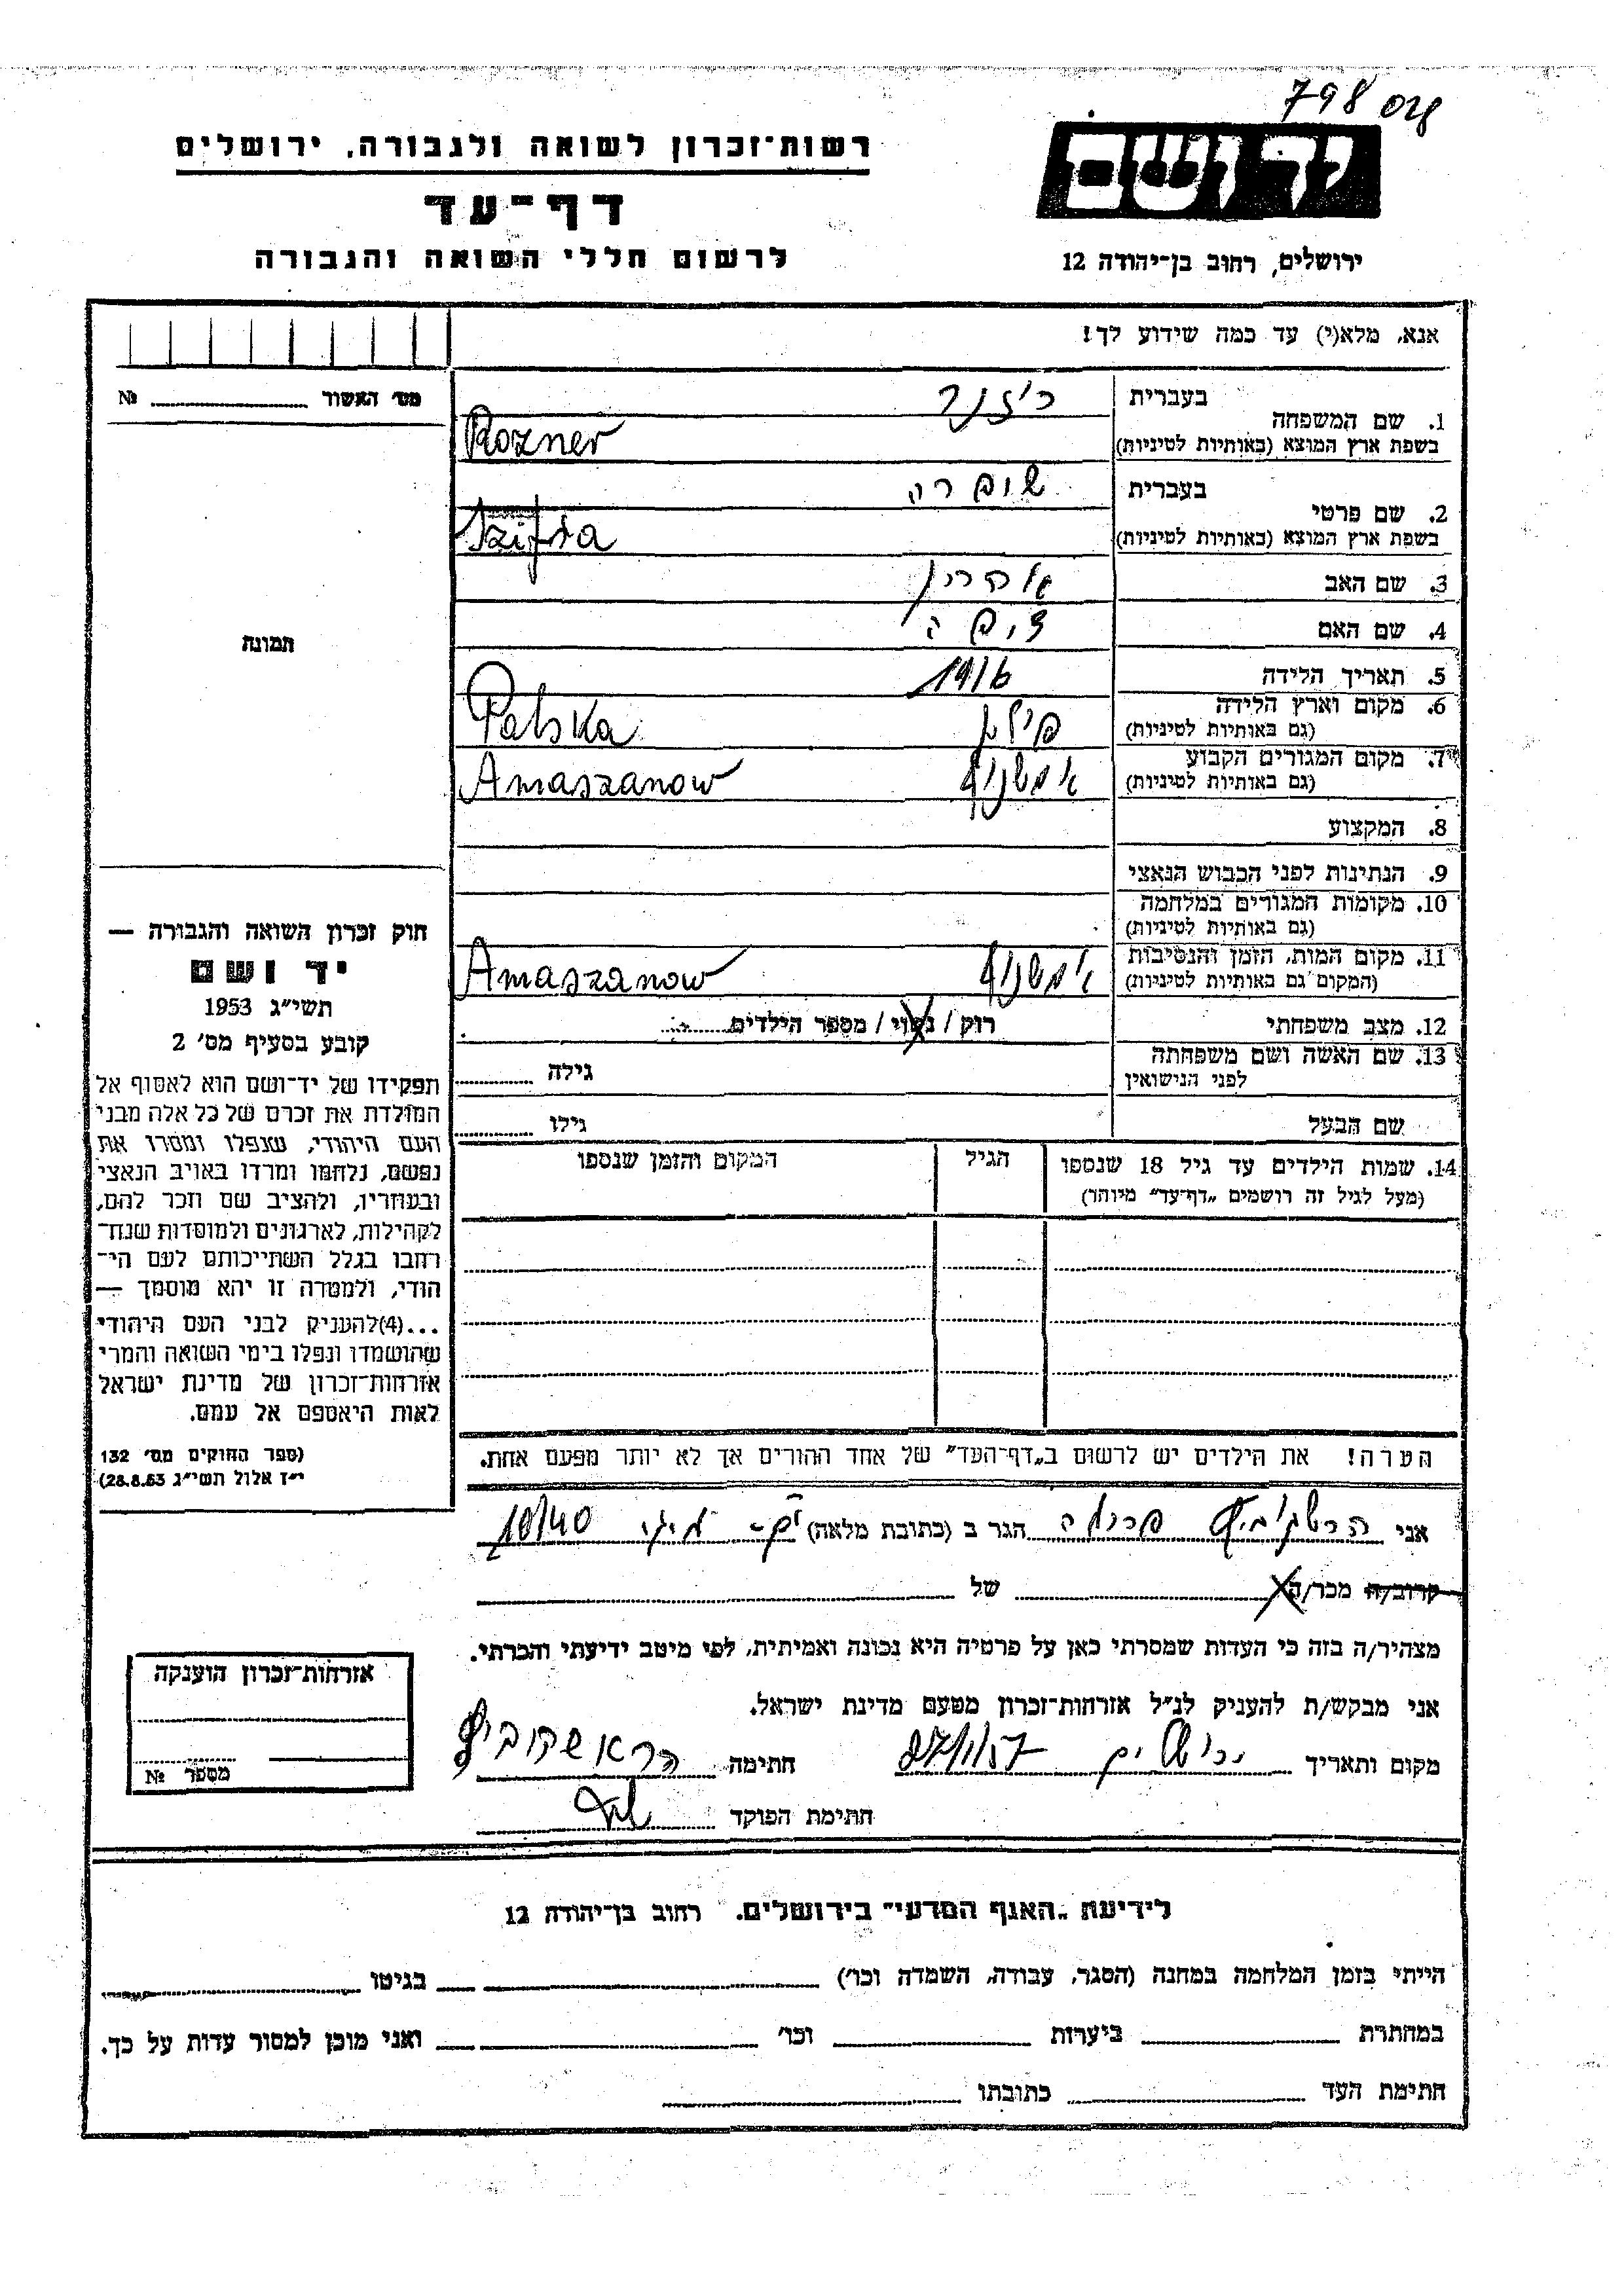 798
רשות־זכרון לשואה ולגבורה, ירושלים
יד ושם
דף־עד
לרשום חללי השואה והגבורה
ירושלים, רחוב בן־יהודה 12
אנא, מלא(י) עד כמה שידוע לך!
מס׳ האשור № 
1. שם המשפחה
בעברית רוזנר
בשפת ארץ המוצא (באותיות לטיניות) Rozner
2. שם פרטי
בעברית שופרה
בשפת ארץ המוצא (באותיות לטיניות) Szifra
3. שם האב אהרון
4. שם האם ציפה
5. תאריך הלידה 1916
6. מקום וארץ הלידה
(גם באותיות לטיניות) פולין Polska
7. מקום המגורים הקבוע
(גם באותיות לטיניות) אמשנוף Amaszanow
8. המקצוע
9. הנתינות לפני הכבוש הנאצי
10. מקומות המגורים במלחמה
(גם באותיות לטיניות)
11. מקום המות, הזמן והנסיבות
(המקום גם באותיות לטיניות) אמשנוף Amaszanow
12. מצב משפחתי רוק / נשוי / מספר הילדים
13. שם האשה ושם משפחתה
לפני הנישואין גילה
שם הבעל גילו
14. שמות הילדים עד גיל 18 שנספו
(מעל לגיל זה רושמים „דף־עד״ מיוחד)
הגיל
המקום והזמן שנספו
הערה! את הילדים יש לרשום ב„דף־העד״ של אחד ההורים אך לא יותר מפעם אחת.
תמונה
חוק זכרון השואה והגבורה —
יד ושם
תשי״ג 1953
קובע בסעיף מס׳ 2
תפקידו של יד־ושם הוא לאסוף אל
המולדת את זכרם של כל אלה מבני
העם היהודי, שנפלו ומסרו את
נפשם, נלחמו ומרדו באויב הנאצי
ובעוזריו, ולהציב שם וזכר להם,
לקהילות, לארגונים ולמוסדות שנח־
רבו בגלל השתייכותם לעם הי־
הודי, ולמטרה זו יהא מוסמך —
...(4)להעניק לבני העם היהודי
שהושמדו ונפלו בימי השואה והמרי
אזרחות־זכרון של מדינת ישראל
לאות היאספם אל עמם.
(ספר החוקים מס׳ 132
י״ז אלול תשי״ג 28.8.53)
אני הרשקוביץ הגר ב (כתובת מלאה) 10/40
קרוב/ה מכר/ה של
מצהיר/ה בזה כי העדות שמסרתי כאן על פרטיה היא נכונה ואמיתית, לפי מיטב ידיעתי והכרתי.
אני מבקש/ת להעניק לנ״ל אזרחות־זכרון מטעם מדינת ישראל.
מקום ותאריך ירושלים 27/1/57 חתימה הראשקוביץ
חתימת הפוקד
אזרחות־זכרון הוענקה
מספר №
לידיעת „האגף המדעי״ בירושלים, רחוב בן־יהודה 12
הייתי בזמן המלחמה במחנה (הסגר, עבודה, השמדה וכו׳) בגיטו
במחתרת ביערות וכו׳ ואני מוכן למסור עדות על כך.
חתימת העד כתובתו